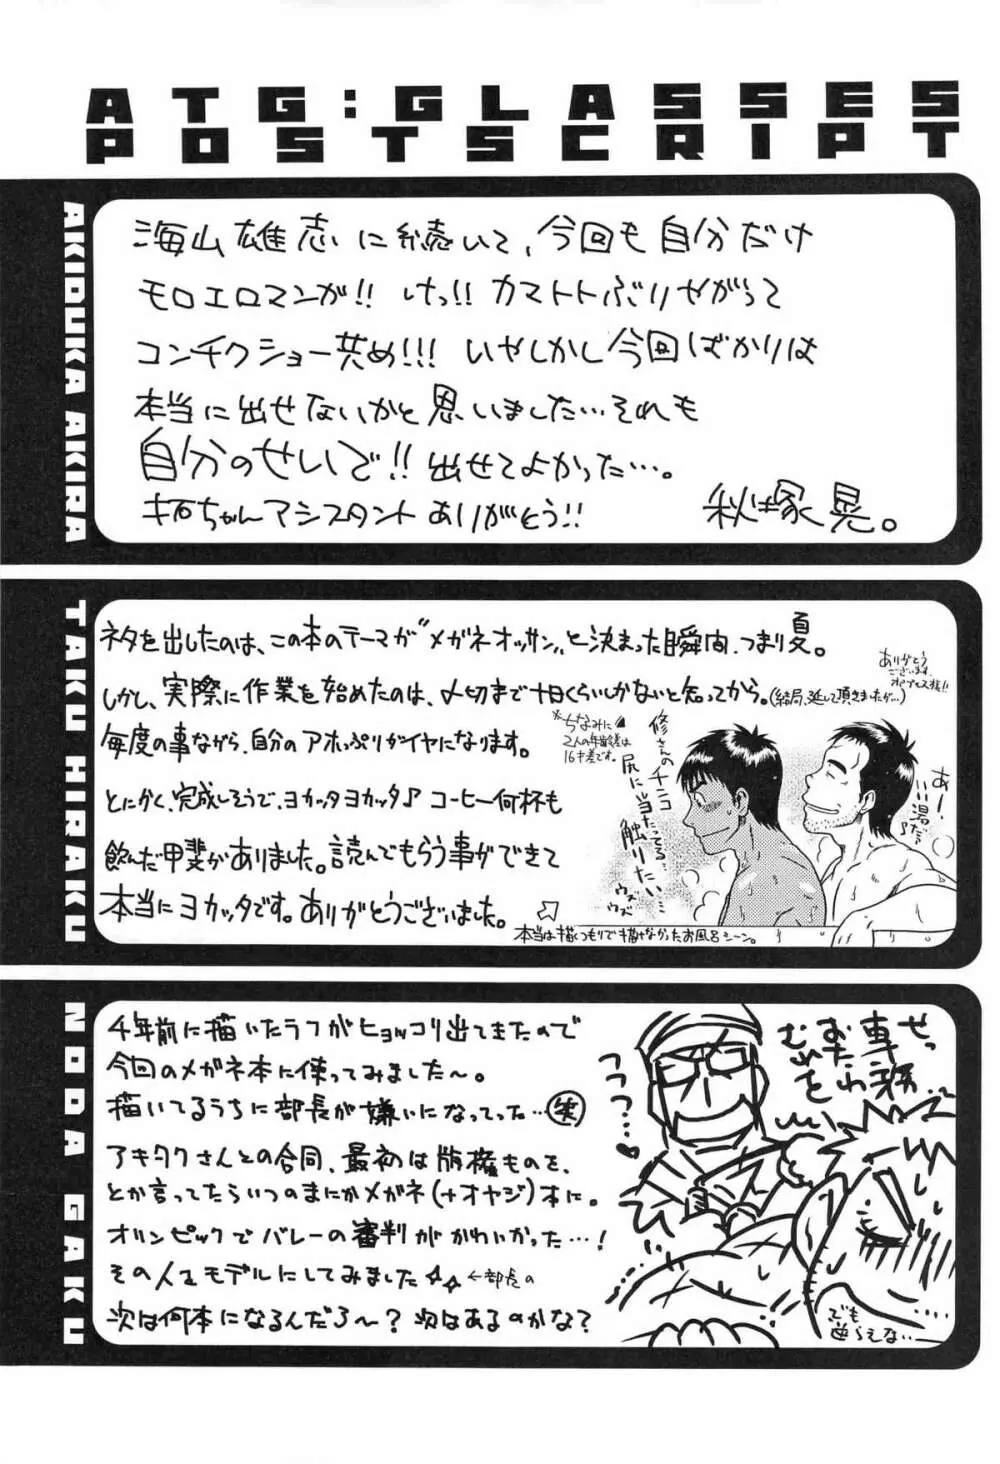 ATG:GLASSES
POSTSCRIPT
AKIDUKA AKIRA
海山雄志に続いて、今回も自分だけ
モロエロマンガ!! けっ!! カマトトぶりやがって
コンチクショー共め!!! いやしかし今回ばかりは
本当に出せないかと思いました…それも
自分のせいで!! 出せてよかった…。
ちゃんアシスタントありがとう!!
秋塚晃。
TAKU HIRAKU
ネタを出したのは、この本のテーマが“メガネオッサン”と決まった瞬間、つまり夏。
しかし、実際に作業を始めたのは、〆切まで十日くらいしかないと知ってから。(結局、延して頂きましたが…)
ありがとう
ございます、
毎度の事ながら、自分のアホっぷりがイヤになります。
とにかく、完成しそうで、ヨカッタヨカッタ♪ コーヒー何杯も
飲んだ甲斐がありました。読んでもらう事ができて
本当にヨカッタです。ありがとうございました。
※ちなみに
2人の年齢差は
16才差です。
修さんのチンコ
尻に当たってる…
触りたい…
ウズウズ
あー!
いい湯だぁ
本当は描くつもりで描けなかったお風呂シーン。
NODA GAKU
4年前に描いたラフがヒョッコリ出てきたので
今回のメガネ本に使ってみました〜。
描いてるうちに部長が嫌いになってった…(笑)
アキタクさんとの合同、最初は版権ものを、
とか言ってたらいつのまにかメガネ(+オヤジ)本に。
オリンピックでバレーの審判がかわいかった…!
その人をモデルにしてみました☆☆ ←部長の
次は何本になるんだろ〜? 次はあるのかな?
フフフ…♥
せっ
専務…
おたわ
むれを
でも
逆らえない…